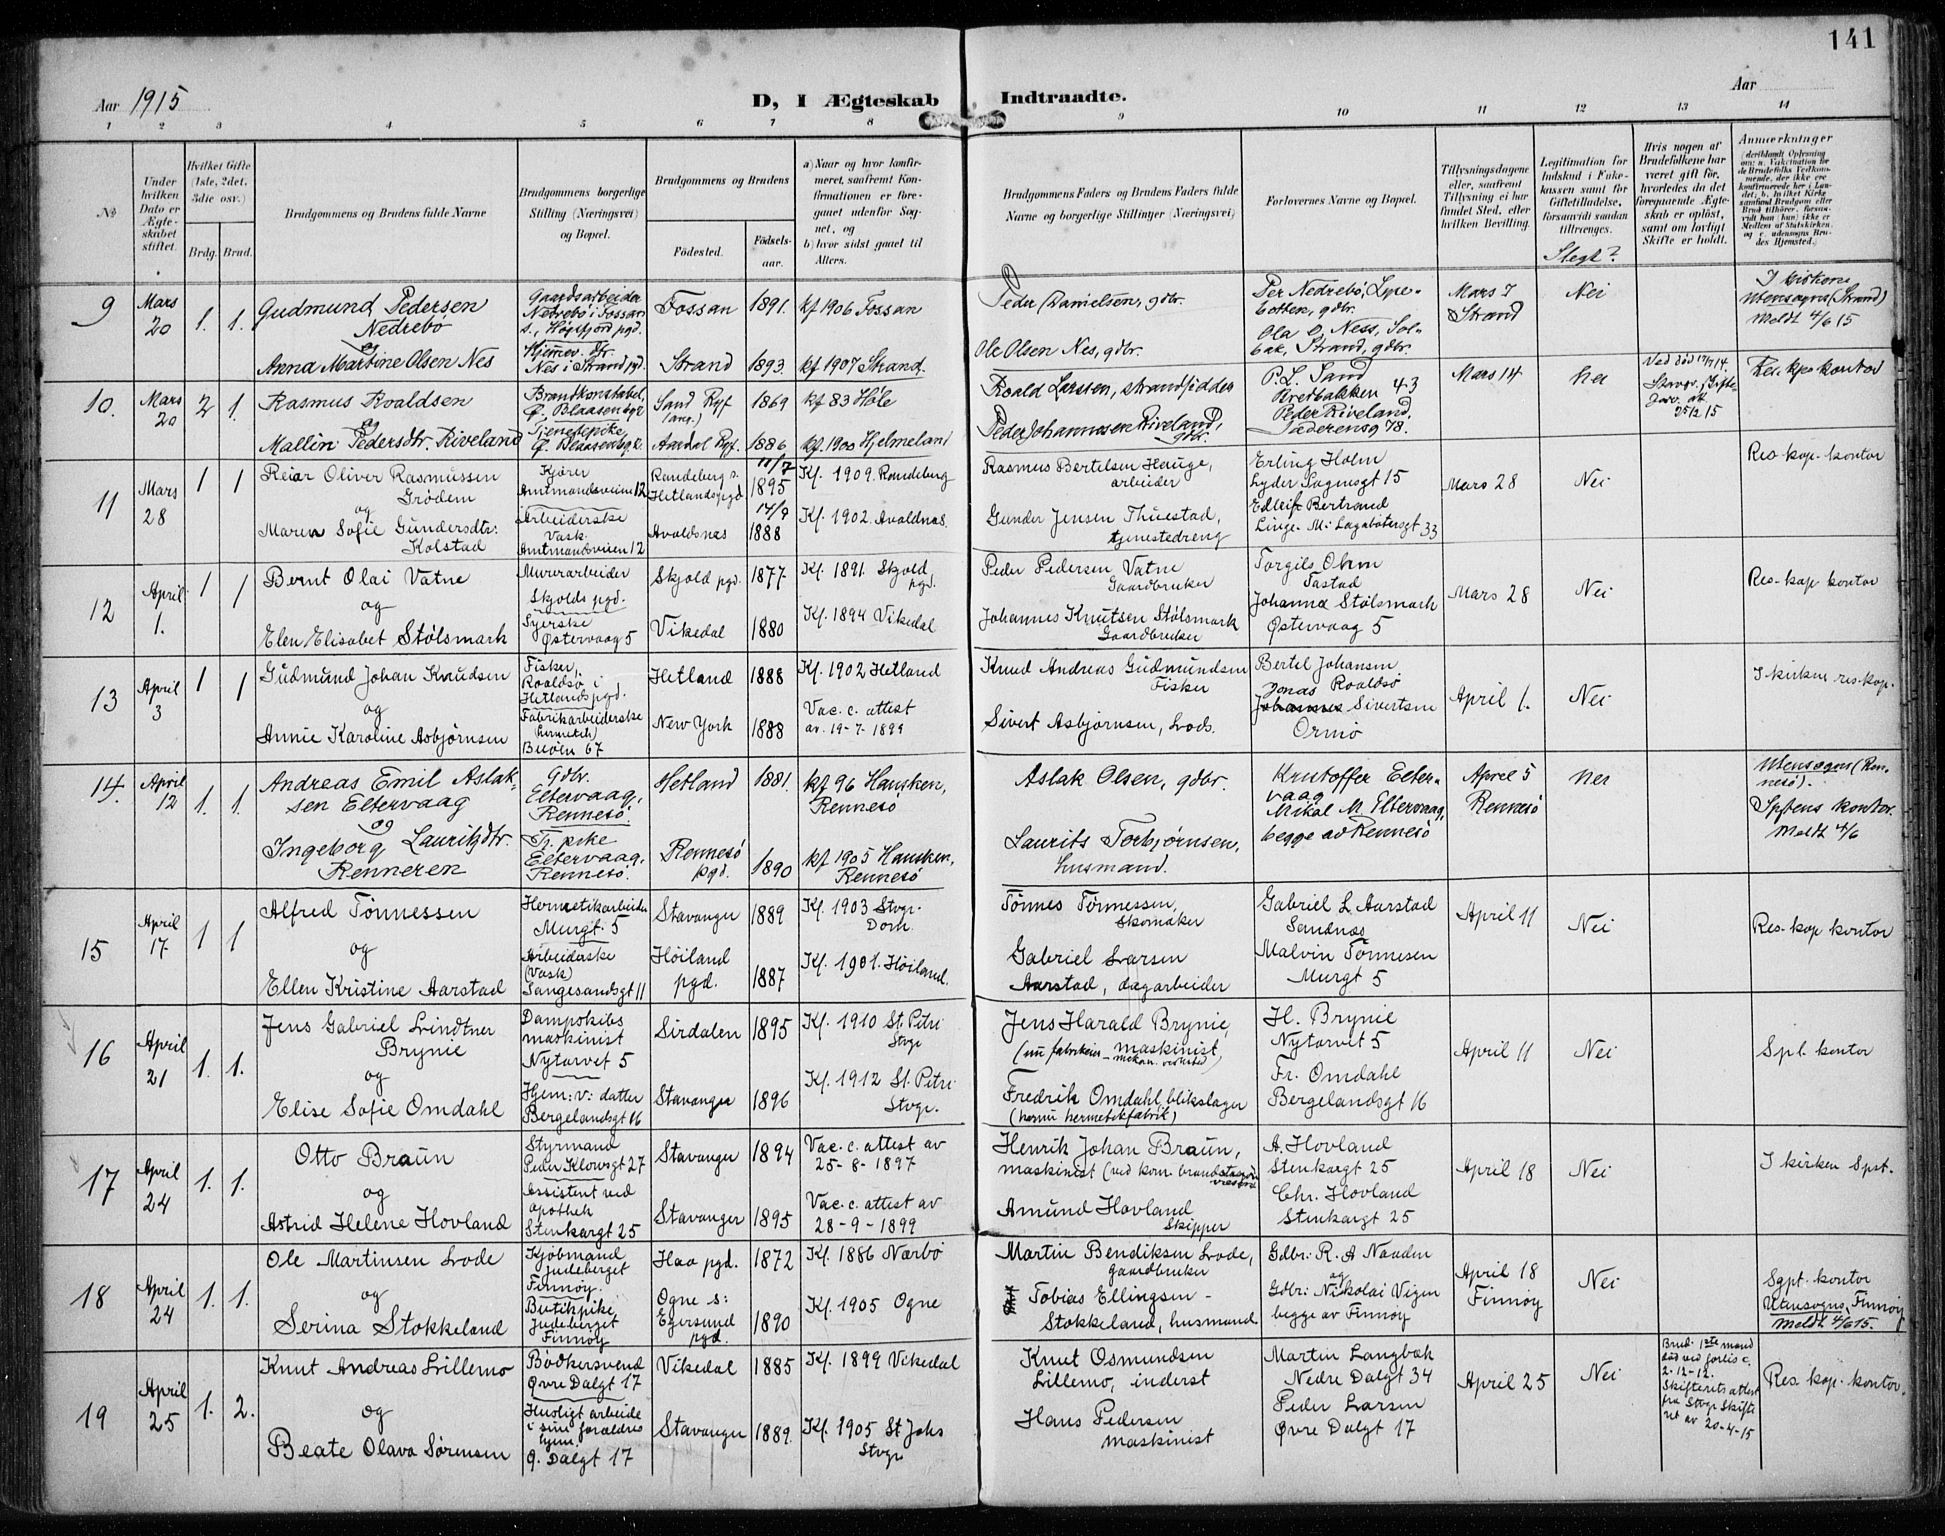 141
Aar 1915
D, I Ægteskab Indtraadte.
Aar
1 2 3 4 5 6 7 8 9 10 11 12 13 14
No
Under hvilken Dato er Ægteskabet stiftet.
Hvilket Gifte (1ste, 2det, 3die osv.)
Brdg. Brud.
Brudgommens og Brudens fulde Navne
Brudgommens borgerlige Stilling (Næringsvei) og Bopæl.
Brudgommens og Brudens
Födested.
Födselsaar.
a) Naar og hvor konfirmeret, saafremt Konfirmationen er foregaaet udenfor Sognet, og
b) hvor sidst gaaet til Alters.
Brudgommens Faders og Brudens Faders fulde Navne og borgerlige Stillinger (Næringsvei)
Forlovernes Navne og Bopæl.
Tillysningsdagene eller, saafremt Tillysning ei har fundet Sted, efter hvilken Bevilling.
Legitimation for Indskud i Enkekassen samt for Giftetilladelse, forsaavidt saadan tiltrænges.
Slegt?
Hvis nogen af Brudefolkene har været gift før, hvorledes da det foregaaende Ægteskab er oplöst, samt om lovligt Skifte er holdt.
Anmærkninger
9
Mars 20
1. 1.
Gudmund Pedersen
Nedrebö
og
Anna Martine Olsen Nes
Gaardsarbeider
Nedrebö i Fossan
s., Høgsfjord pgd.
Hjemmev. dtr.
Nes i Strand pgd.
Fossan 1891. kf 1906 Fossan
Strand 1893. kf 1907 Strand.
Peder Danielsen, gdbr.
Ole Olsen Nes, gdbr.
Per Nedrebö,
gdbr.
Ola O. Ness, Solbak, Strand, gdbr.
Mars 7
Strand
Nei
I kirken
Utensogns (Strand)
Meldt 4/6 15
10.
Mars 20
2 1.
Rasmus Roaldsen
og
Mallin Pedersdtr. Riveland
Brandkonstabel,
Ø. Blaasenbg 2
Tjenestepike
Ø. Blaasenbg 2.
Sand Ryf 1869 kf 83 Höle
Aardal Ryf. 1886 kf. 1900 Hjelmeland
Roald Larssen, strandsidder
Peder Johannessen Riveland,
gdbr.
P. L. Sand
Kvedbakken 43
Peder Riveland.
Pedersensg 78.
Mars 14
Nei
Res. kps kontor
11
Mars 28
1 1
Reiar Oliver Rasmussen
Grødem
og
Maren Sofie Gundersdtr:
Kolstad
Kjører
Amtmandsveien 12
Arbeiderske
Vask.
Amtmandsveien 12
Randeberg s.
Hetlands pgd
11/7
1895
Kf. 1909. Randeberg
Avaldsnes
14/9
1888
Kf. 1902. Avaldnas.
Rasmus Bertelsen Hauge,
arbeider
Gunder Jensen Thuestad,
tjenestedreng
Erling Holm
Lyder Sagensgt 15
Edleif Bertrand
Linge. M: Lagabøtersgt 33
Mars 28
Nei
Res-kap-kontor
12
April 1.
1 1
Bernt Olai Vatne
og
Elen Elisabet Stølsmark
Murerarbeider
Skjolds pgd.
Syerske
Østervaag 5
Skjold pgd. 1877. Kf. 1891. Skjold pgd.
Vikedal 1880 Kf. 1894 Vikedal
Peder Pedersen Vatne
Gaardbruker
Johannes Knutsen Stølsmark
Gaardbruker
Torgils Ohm
Tastad
Johanna Stølsmark
Østervaag 5
Mars 28
Nei
Res-kap kontor
13
April 3
1 1
Gudmund Johan Knudsen
og
Annie Karoline Asbjørnsen
Fisker,
Roaldsø i
Hetlands pgd.
Fabrikarbeiderske
(hermetik)
Buøen 67
Hetland 1888 Kf. 1902 Hetland
New York 1888 Vac. c. attest
av. 19-7-1899
Knud Andreas Gudmundsen
Fisker
Sivert Asbjørnsen, Lods.
Bertel Johansen
Jonas Roaldsö
Johannes Sivertsen
Ormö
April 1.
Nei
I kirken res-kap.
14.
April 12
1. 1.
Andreas Emil Aslaksen Eltervaag
og
Ingeborg Lauritzdtr.
Renneren
Gdbr.
Eltervaag,
Rennesö.
Tj. pike
Eltervaag,
Rennesö.
Hetland 1881. kf 96 Hausken,
Rennesö
Rennesö pgd. 1890 kf 1905 Hausken,
Rennesö
Aslak Olsen, gdbr.
Laurits Torbjørnsen,
husmand.
Kristoffer Eltervaag
Mikal M. Eltervaag,
begge av Rennesö
April 5
Rennesö
Nei
Utensogns (Rennesö).
Sptens kontor.
Meldt 4/6
15
April 17.
1 1
Alfred Tönnessen
og
Ellen Kristine Aarstad
Hermetikarbeider
Murgt. 5
Arbeiderske
(Vask)
Langesandsgt 11
Stavanger 1889 Kf. 1903 Stvgr.
Dom.
Höiland pgd. 1887 Kf. 1901. Höiland.
Tönnes Tönnessen,
Skomaker
Gabriel Larsen
Aarstad, dagarbeider
Gabriel L Aarstad
Sandnas
Malvin Tönnesen
Murgt 5
April 11
Nei
Res-kap kontor
16
April 21
1. 1.
Jens Gabriel Lindtner
Brynie
og
Elise Sofie Omdahl
Dampskibs
maskinist
Nytorvet 5
Hjem: v: datter
Bergelandsgt 16
Sirdalen 1895 Kf. 1910 St. Petri
Stvgr
Stavanger 1896 Kf. 1912 St. Petri
Stvgr.
Jens Harald Brynie,
maskinist
(nu fabrikeier - mekan. verksted)
Fredrik Omdahl, blikslager
(hermetikfabrik)
H. Brynie
Nytorvet 5
Fr. Omdahl
Bergelandsgt 16
April 11
Nei
Spt. kontor
17
April 24
1. 1.
Otto Braun
og
Astrid Helene Hovland
Styrmand
Peder Klowsgt 27
Assistent ved
apothek
Stenkargt 25
Stavanger 1894 Vac. c. attest av
25-8-1897
Stavanger 1895 Vac. c. attest av
28-9-1899
Henrik Johan Braun,
maskinist (ved kom. brandstasjon
Amund Hovland
Skipper
A. Hovland
Stenkargt 25
Chr. Hovland
Stenkargt 25
April 18
Nei
I kirken Spst.
18
April 24
1. 1.
Ole Martinsen Lode
og
Serina Stokkeland
Kjöbmand
Judeberget
Finnöy.
Butikpike
Judeberget
Finnöy
Haa pgd. 1872 Kf. 1886 Nærbö
Ogne s:
Egersund pgd. 1890 Kf. 1905 Ogne
Martin Bendiksen Lode,
gaardbruker
Tobias Ellingsen -
Stokkeland, husmand
Gdbr: R. A Naaden
og
Gdbr: Nikolai Vigen
begge av Finnöy
April 18
Finnöy
Nei
Sgpt. kontor
Utensogns, Finnöy
Meldt 4/6 15.
19
April 25
1. 2.
Knut Andreas Lillemo
og
Beate Olava Sørensen
Bødkersvend
Øvre Dalgt 17
Husligt arbeide
i sine forældres
hjem.
Ø. Dalgt 17
Vikedal 1885 Kf. 1899 Vikedal
Stavanger 1889. Kf. 1905 St Johs
Stvgr
Knut Osmundsen
Lillemo, inderst
Hans Pedersen
maskinist
Martin Langbak
Nedre Dalgt 34
Peder Larsen
Øvre Dalgt 17
April 25
Nei
Brud: 1ste mand
død ved forlis c.
2-12-12.
Skifterets attest
fra Stvgr Skifte
ret av 20-4-15
Res. kap. kontor.